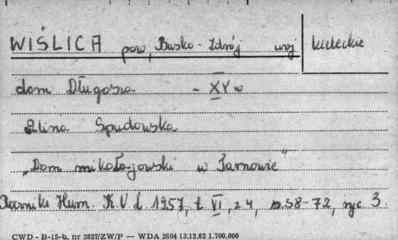 WIŚLICA pow. Busko-Zdrój woj kieleckie
dom Długosza - XV w
Alina Spudowska
"Dom mikołajowski w Tarnowie"
Hum. K.U.L 1957, t VI, z 4, s. 58-72, ryc 3
CWD - B-15-b, nr 2827/ZW/P — WDA 2694 13.12.62 1.700.000